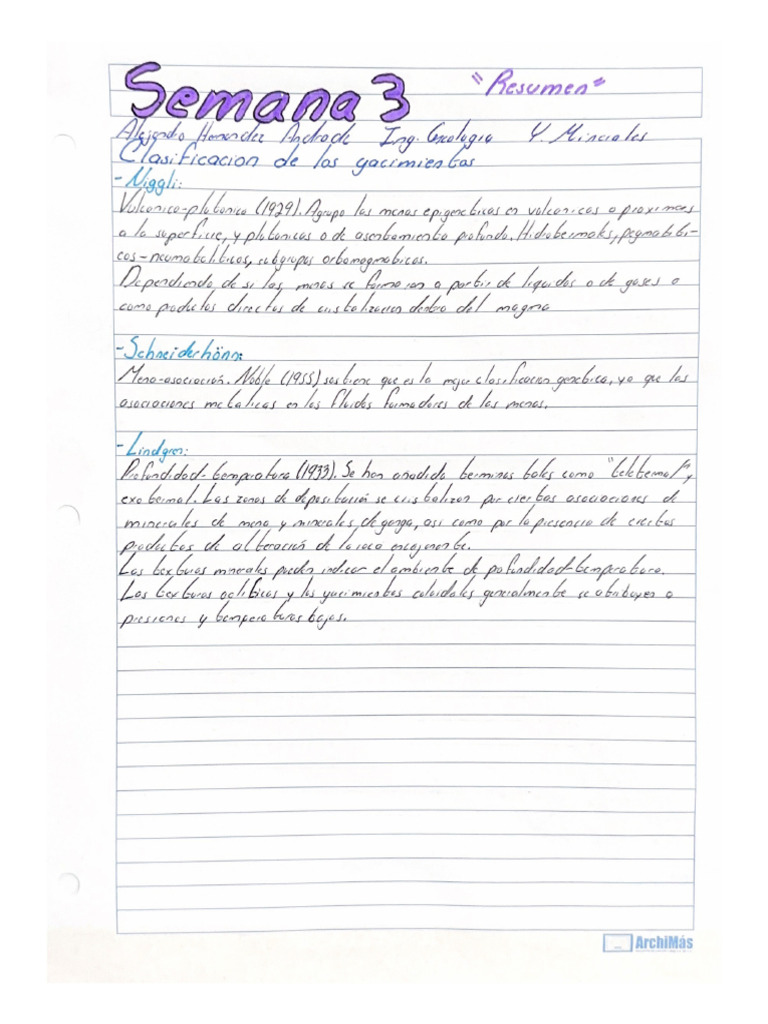 Semana 3 "Resumen"
Alejandro Hernandez Andrade Ing. Geologia Y. Minerales
Clasificacion de los yacimientos
- Niggli:
Volcanico-plutonico (1929). Agrupo las menas epigeneticas en volcanicas o proximas
a la superficie, y plutonicas o de asentamiento profundo. Hidrotermales, pegmatiti-
cos-neumatoliticos, subgrupos ortomagmaticos.
Dependiendo de si las menas se formaron a partir de liquidos o de gases o
como productos directos de cristalizacion dentro del magma
- Schneiderhönn:
Mena-asociación. Noble (1955) sostiene que es la mejor clasificacion genetica, ya que las
asociaciones metalicas en los fluidos formadores de las menas.
- Lindgren:
Profundidad-temperatura (1933). Se han añadido terminos tales como "teletermal" y
exotermal. Las zonas de depositación se cristalizan por ciertas asociaciones de
minerales de mena y minerales de ganga, asi como por la presencia de ciertos
productos de alteración de la roca encajonante.
Las texturas minerales pueden indicar el ambiente de profundidad-temperatura.
Las texturas ooliticas y los yacimientos coloidales generalmente se atribuyen a
presiones y temperaturas bajas.
ArchiMás